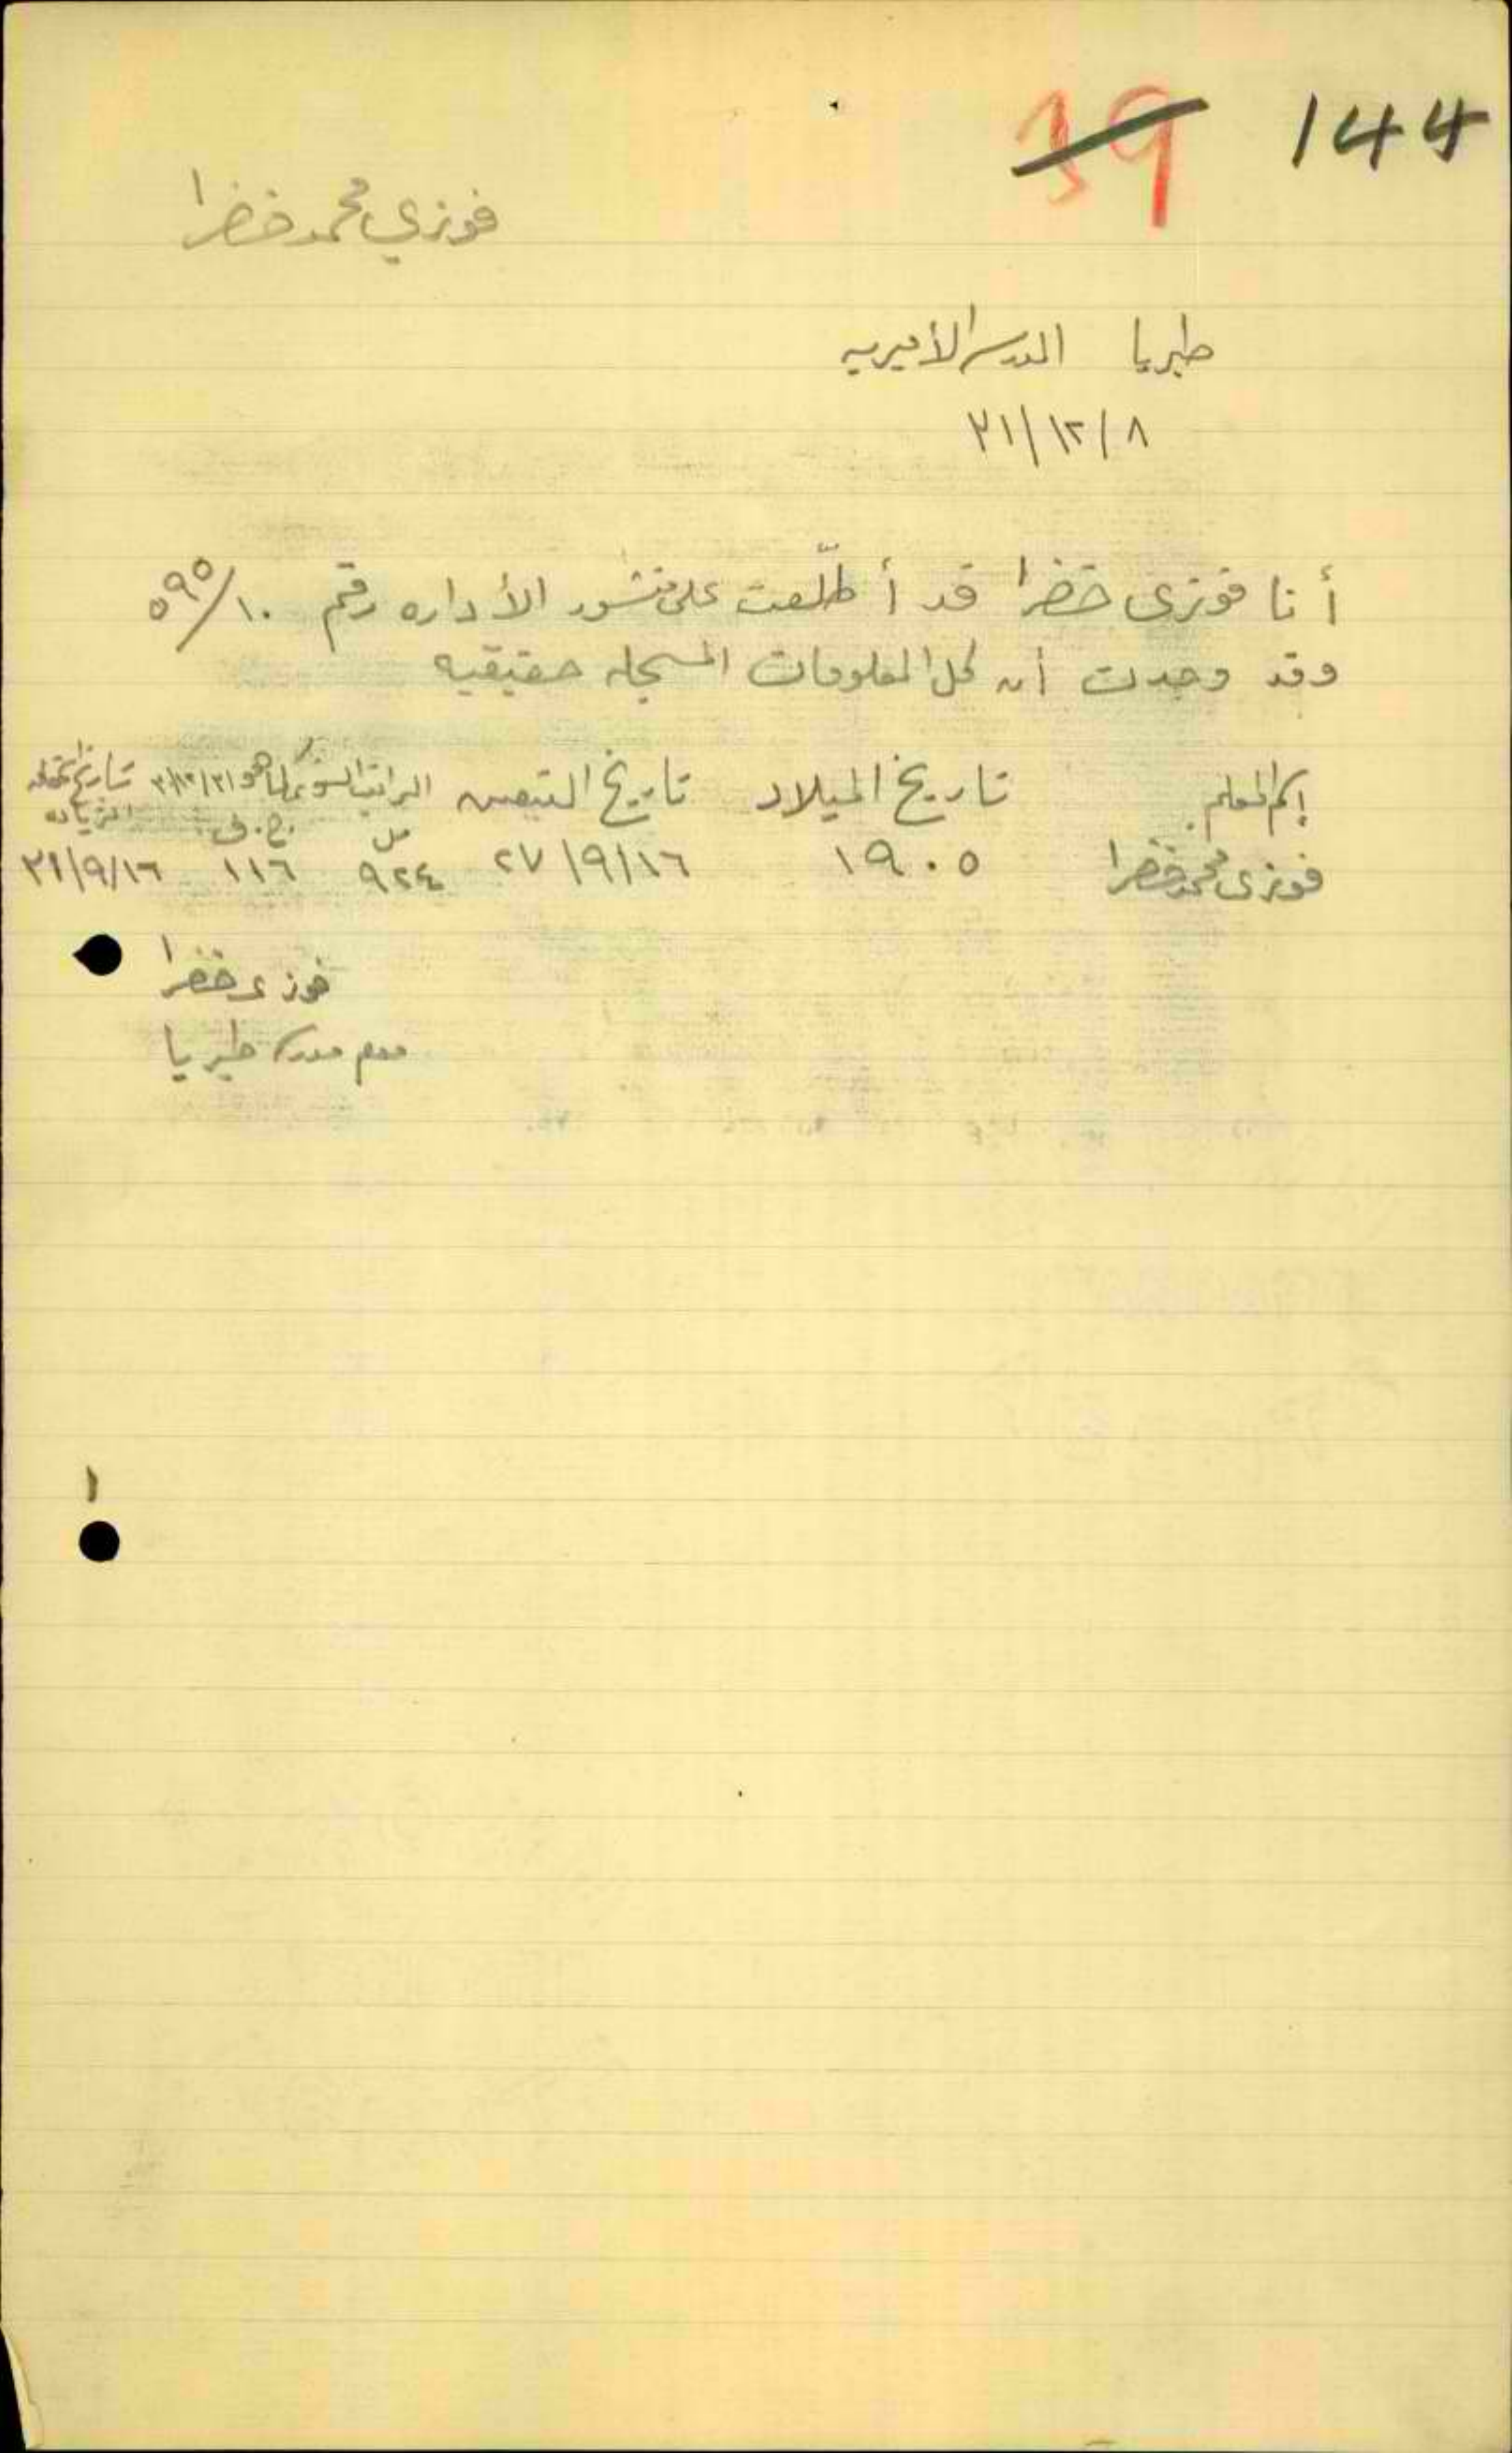 39 144
فوزي محمد خضرا
طبريا المدرسة الأميريه
٣١/١٢/٨
أنا فوزى خضرا قد أطلّعت على منشور الأداره رقم ٥٩٥/١٠
وقد وجدت أن كل المعلومات المسجله حقيقيه
إسم المعلم تاريخ الميلاد تاريخ التعيين الراتب السنوي كما هو ٣١/١٢/٣١ تاريخ استحقاق
الزياده
مل ج.ف
فوزى محمد خضرا ١٩٠٥ ٢٧/٩/١٦ ٩٢٤ ١١٦ ٣١/٩/١٦
فوزى خضرا
معلم مدرسة طبريا